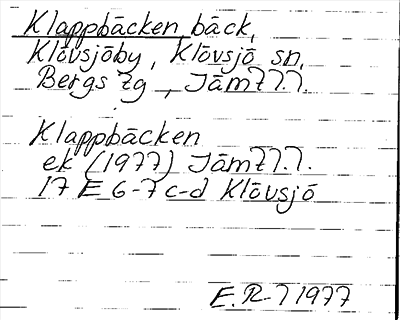 Klappbäcken bäck,
Klövsjöby, Klövsjö sn,
Bergs tg, Jämtl.l.
Klappbäcken
ek (1977) Jämtl.l.
17 E 6-7 c-d Klövsjö
E.R-l 1977